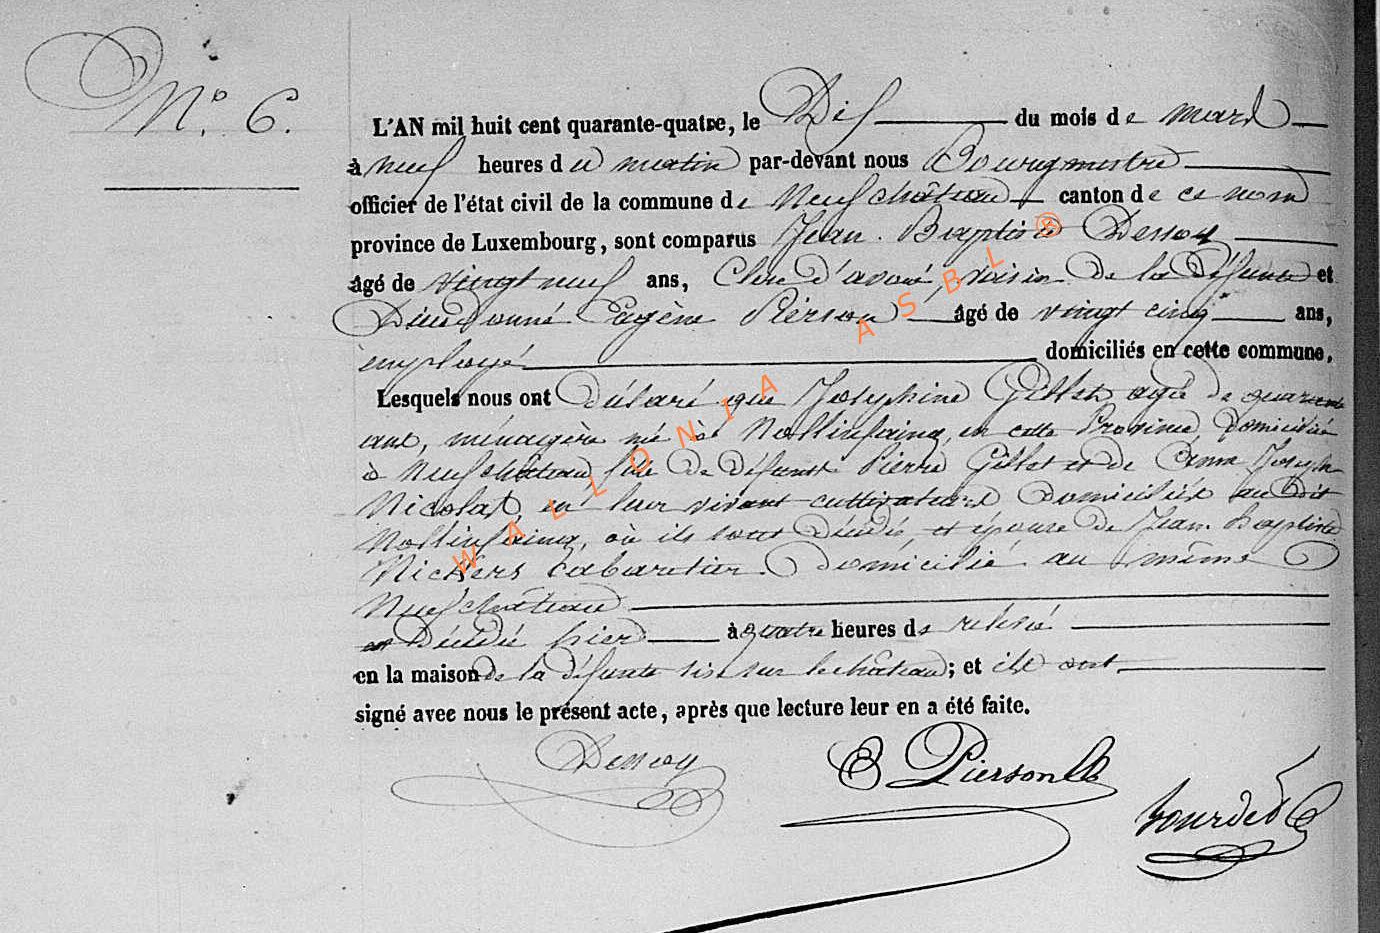 N.º 6.
L'AN mil huit cent quarante-quatre, le Dix du mois de mars
à neuf heures du matin par-devant nous Bourgmestre
officier de l'état civil de la commune de Neufchâteau canton de ce nom
province de Luxembourg, sont comparus Jean Baptiste Dessoy
âgé de vingt neuf ans, Clerc d'avoué, voisin de la défunte et
Dieudonné Eugène Pierson âgé de vingt cinq ans,
employé domiciliés en cette commune,
Lesquels nous ont déclaré que Josephine Gillet agée de quarante
ans, ménagère née à Nollinfaing, en cette Province domiciliée
à Neufchâteau, fille de défunts Pierre Gillet et de Anna Joseph
Nicolas, en leur vivant cultivateurs domiciliés au dit
Nollinfaing, où ils sont décédés, et épouse de Jean Baptiste
Nickers Cabaretier domicilié au même
Neufchâteau
est décédée hier à quatre heures de relevé
en la maison de la défunte sise sur le château; et ils ont
signé avec nous le présent acte, après que lecture leur en a été faite.
Dessoy E Pierson
WALLONIA ASBL ®